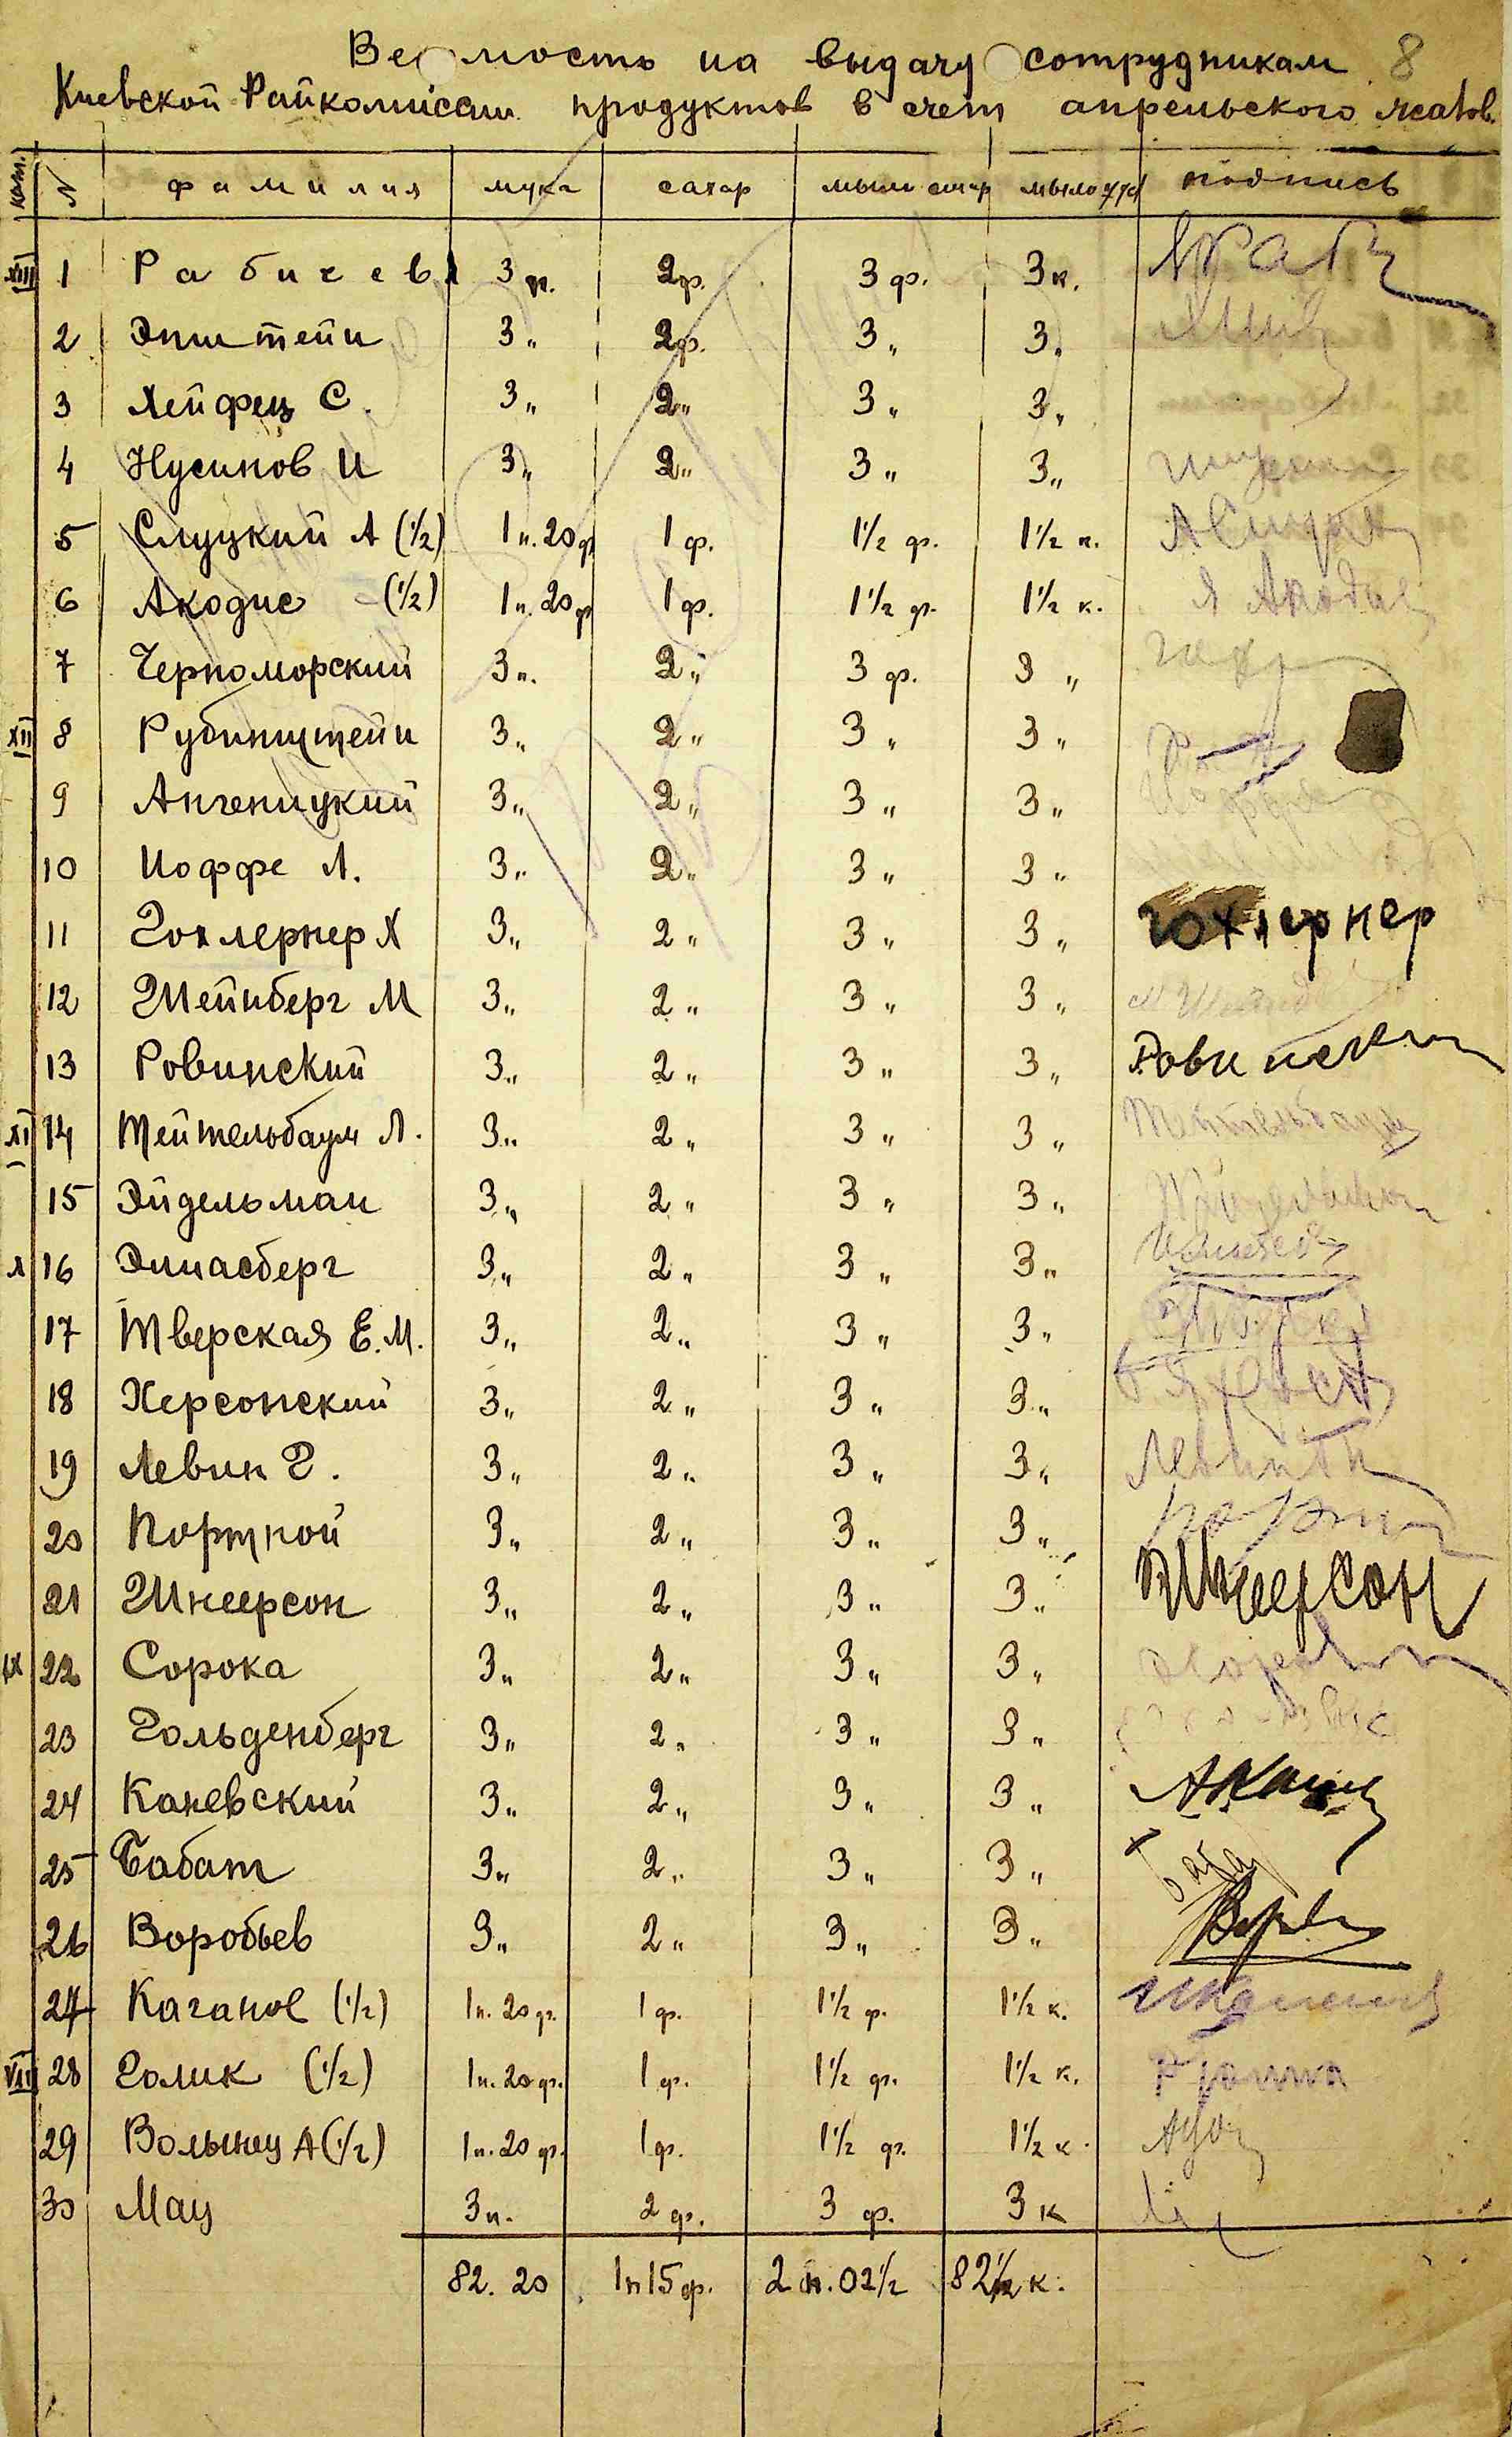 Ведомость на выдачу сотрудникам 8
Киевской Райкомиссии продуктов в счет апрельского жалов.
кат. N фамилия мука сахар мыло стир мыло туал подпись
XIII 1 Рабичев 3 п. 2 ф. 3 ф. 3 к.
2 Эпштейн 3 " 2 ф. 3 " 3 "
3 Хейфец С. 3 " 2 " 3 " 3 "
4 Нусинов И 3 " 2 " 3 " 3 "
5 Слуцкий А (1/2) 1 п. 20 ф 1 ф. 1 1/2 ф. 1 1/2 к.
6 Акодис (1/2) 1 п. 20 ф 1 ф. 1 1/2 ф. 1 1/2 к. Я Акодис
7 Черноморский 3 п. 2 " 3 ф. 3 "
XII 8 Рубинштейн 3 " 2 " 3 " 3 "
9 Ангеницкий 3 " 2 " 3 " 3 "
10 Иоффе Л. 3 " 2 " 3 " 3 "
11 Гохлернер Х 3 " 2 " 3 " 3 " Гохлернер
12 Шейнберг М 3 " 2 " 3 " 3 "
13 Ровинский 3 " 2 " 3 " 3 " Ровинский
XI 14 Тейтельбаум Л. 3 " 2 " 3 " 3 " Тейтельбаум
15 Эйдельман 3 " 2 " 3 " 3 "
X 16 Элиасберг 3 " 2 " 3 " 3 "
17 Тверская Е.М. 3 " 2 " 3 " 3 "
18 Херсонский 3 " 2 " 3 " 3 "
19 Левин Г. 3 " 2 " 3 " 3 "
20 Портной 3 " 2 " 3 " 3 "
21 Шнеерсон 3 " 2 " 3 " 3 " Шнеерсон
IX 22 Сорока 3 " 2 " 3 " 3 "
23 Гольденберг 3 " 2 " 3 " 3 "
24 Каневский 3 " 2 " 3 " 3 "
25 Бабат 3 " 2 " 3 " 3 "
26 Воробьев 3 " 2 " 3 " 3 "
27 Каганов (1/2) 1 п. 20 ф. 1 ф. 1 1/2 ф. 1 1/2 к.
VIII 28 Голик (1/2) 1 п. 20 ф. 1 ф. 1 1/2 ф. 1 1/2 к.
29 Волынец А (1/2) 1 п. 20 ф. 1 ф. 1 1/2 ф. 1 1/2 к.
30 Мац 3 п. 2 ф. 3 ф. 3 к
82. 20 1 п 15 ф. 2 п. 02 1/2 82 1/2 к.